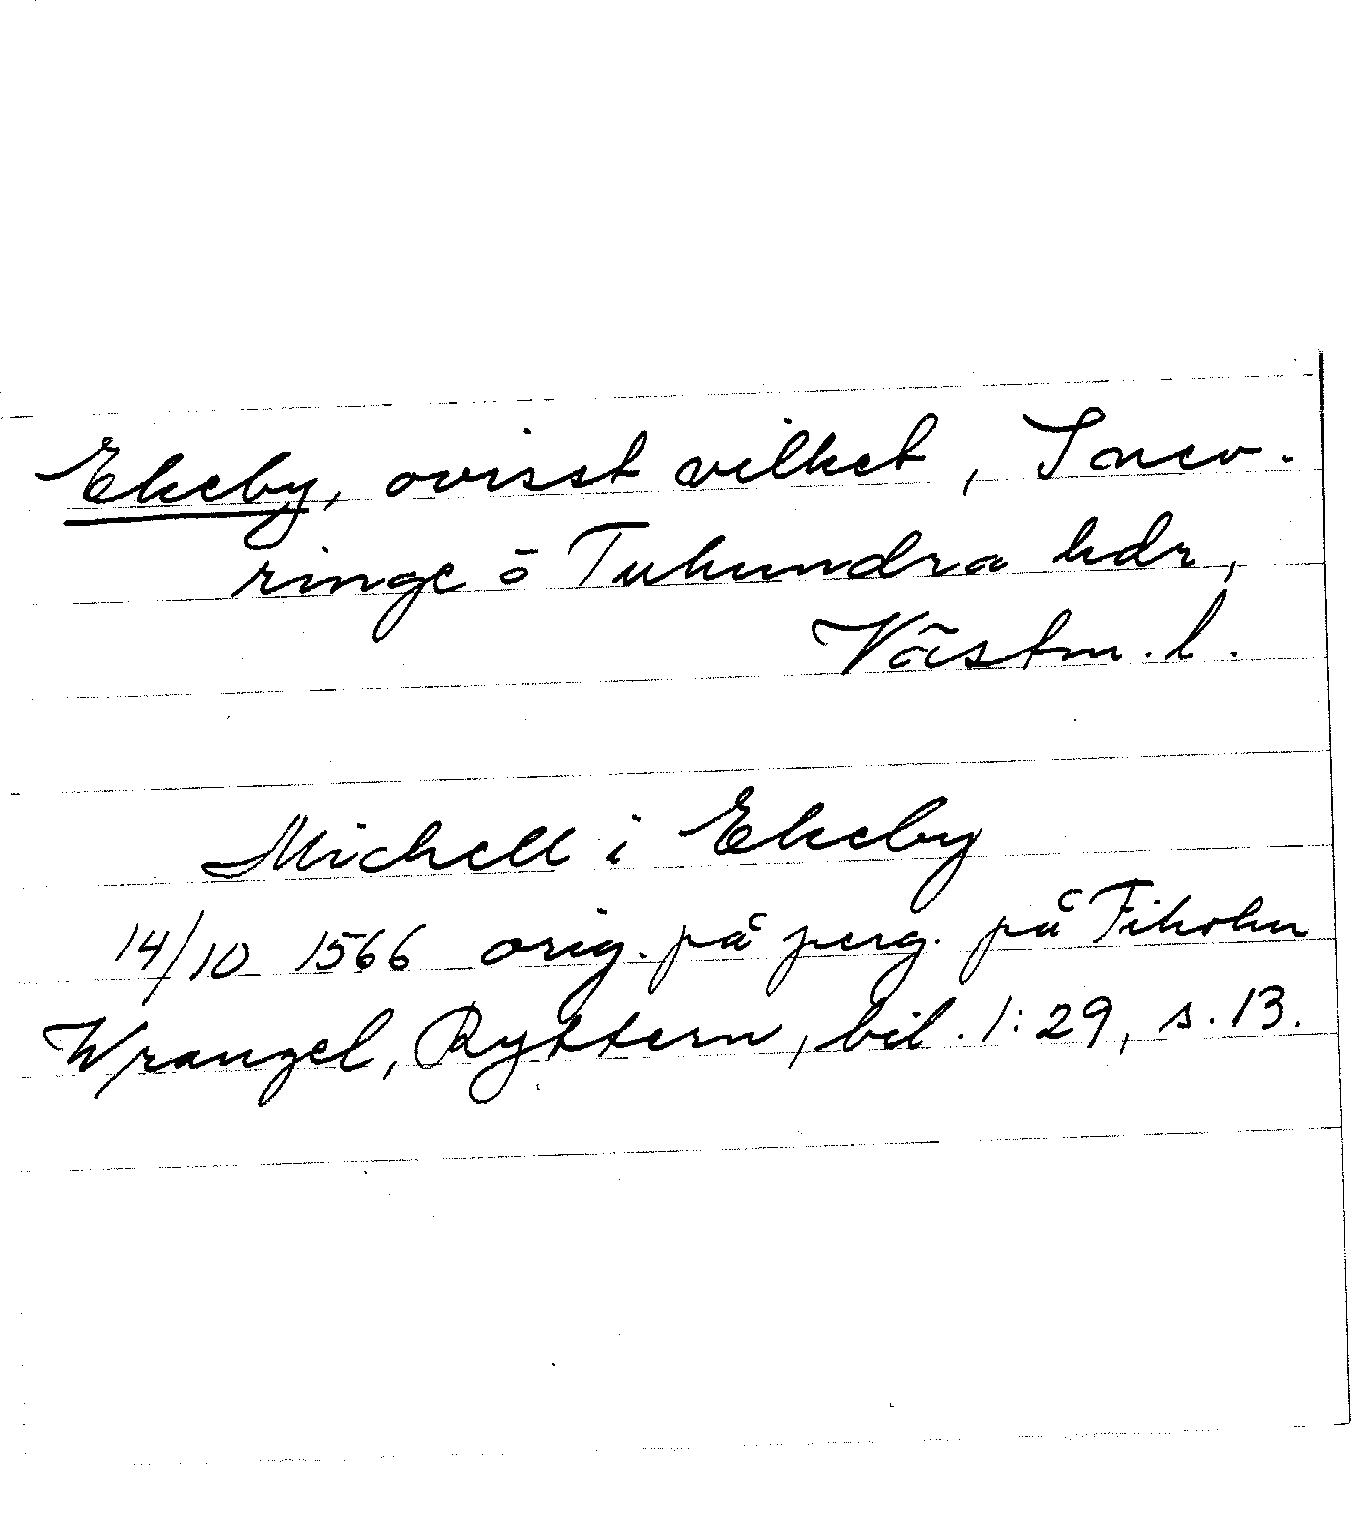 Ekeby, ovisst vilket, Snev-
ringe o Tuhundra hdr,
Västm. l.
Michell i Ekeby
14/10 1566 orig. på perg. på Fiholm
Wrangel, Ryttern, bil. 1:29, s. 13.